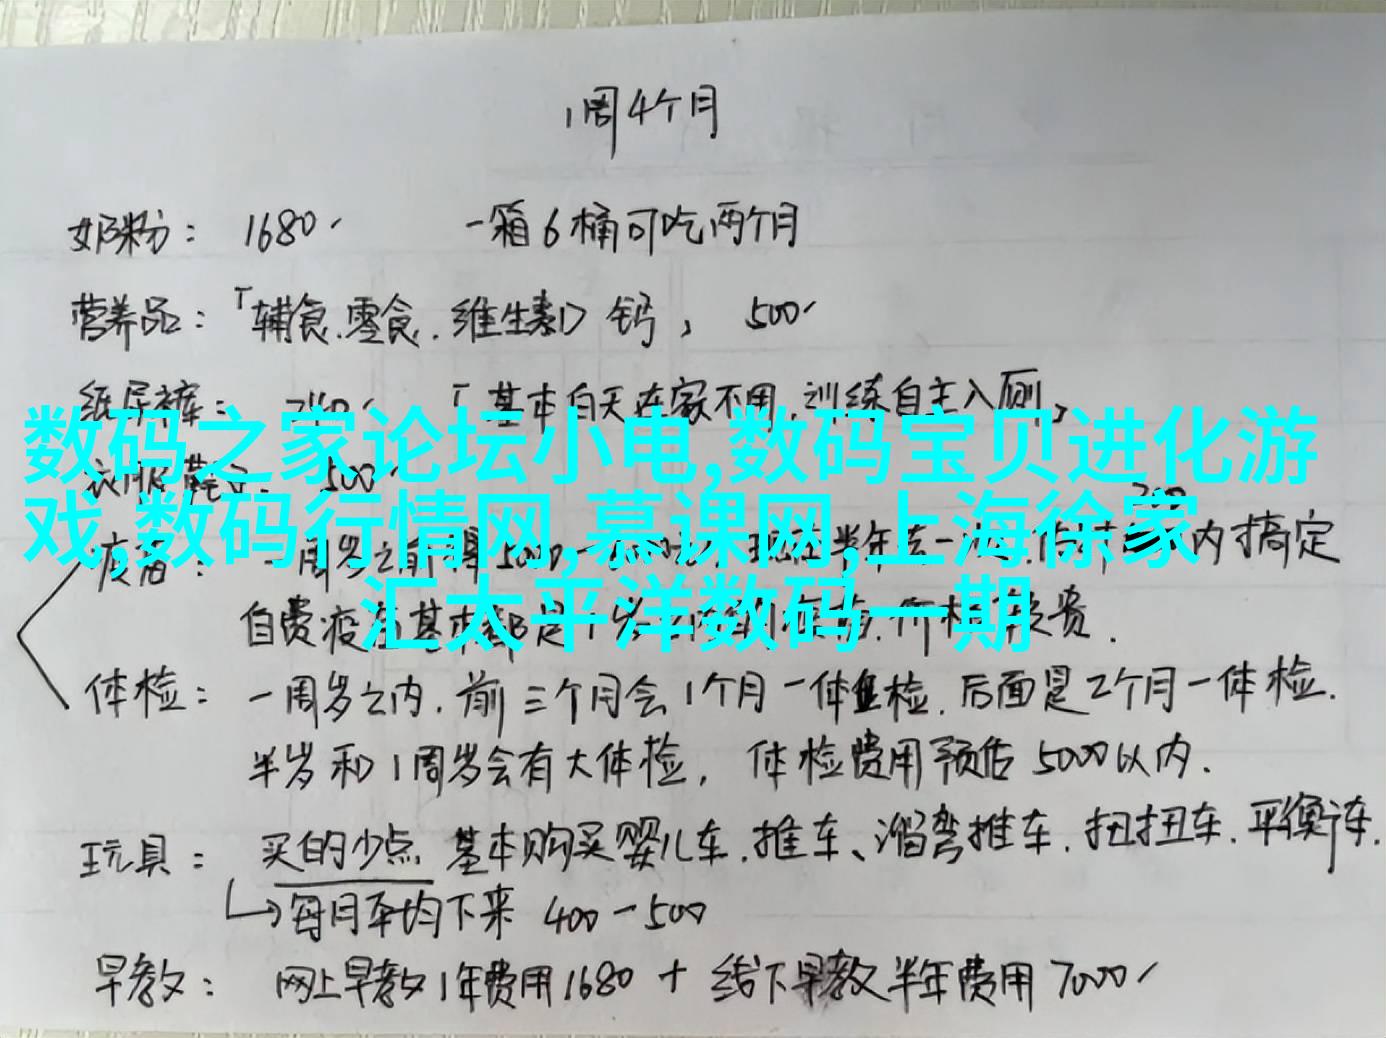 1周4个月
奶粉： 1680 一箱6桶可吃两个月
营养品：「辅食.零食.维生素D 钙， 500
纸尿裤： 「基本白天在家不用,训练自主入厕」
数码之家论坛小电,数码宝贝进化游
500
戏,数码行情网,慕课网,上海徐家
疫苗： 一周岁之前 内搞定
汇太平洋数码一期
自费疫苗基本都是 贵.
体检： 一周岁之内.前三个月会1个月一体检.后面是2个月一体检.
半岁和1周岁会有大体检, 体检费用预估5000以内.
玩具： 买的少点 基本购买婴儿车.推车、溜弯推车.扭扭车.平衡车.
每月平均下来 400-500
早教： 网上早教1年费用1680 + 线下早教半年费用7000